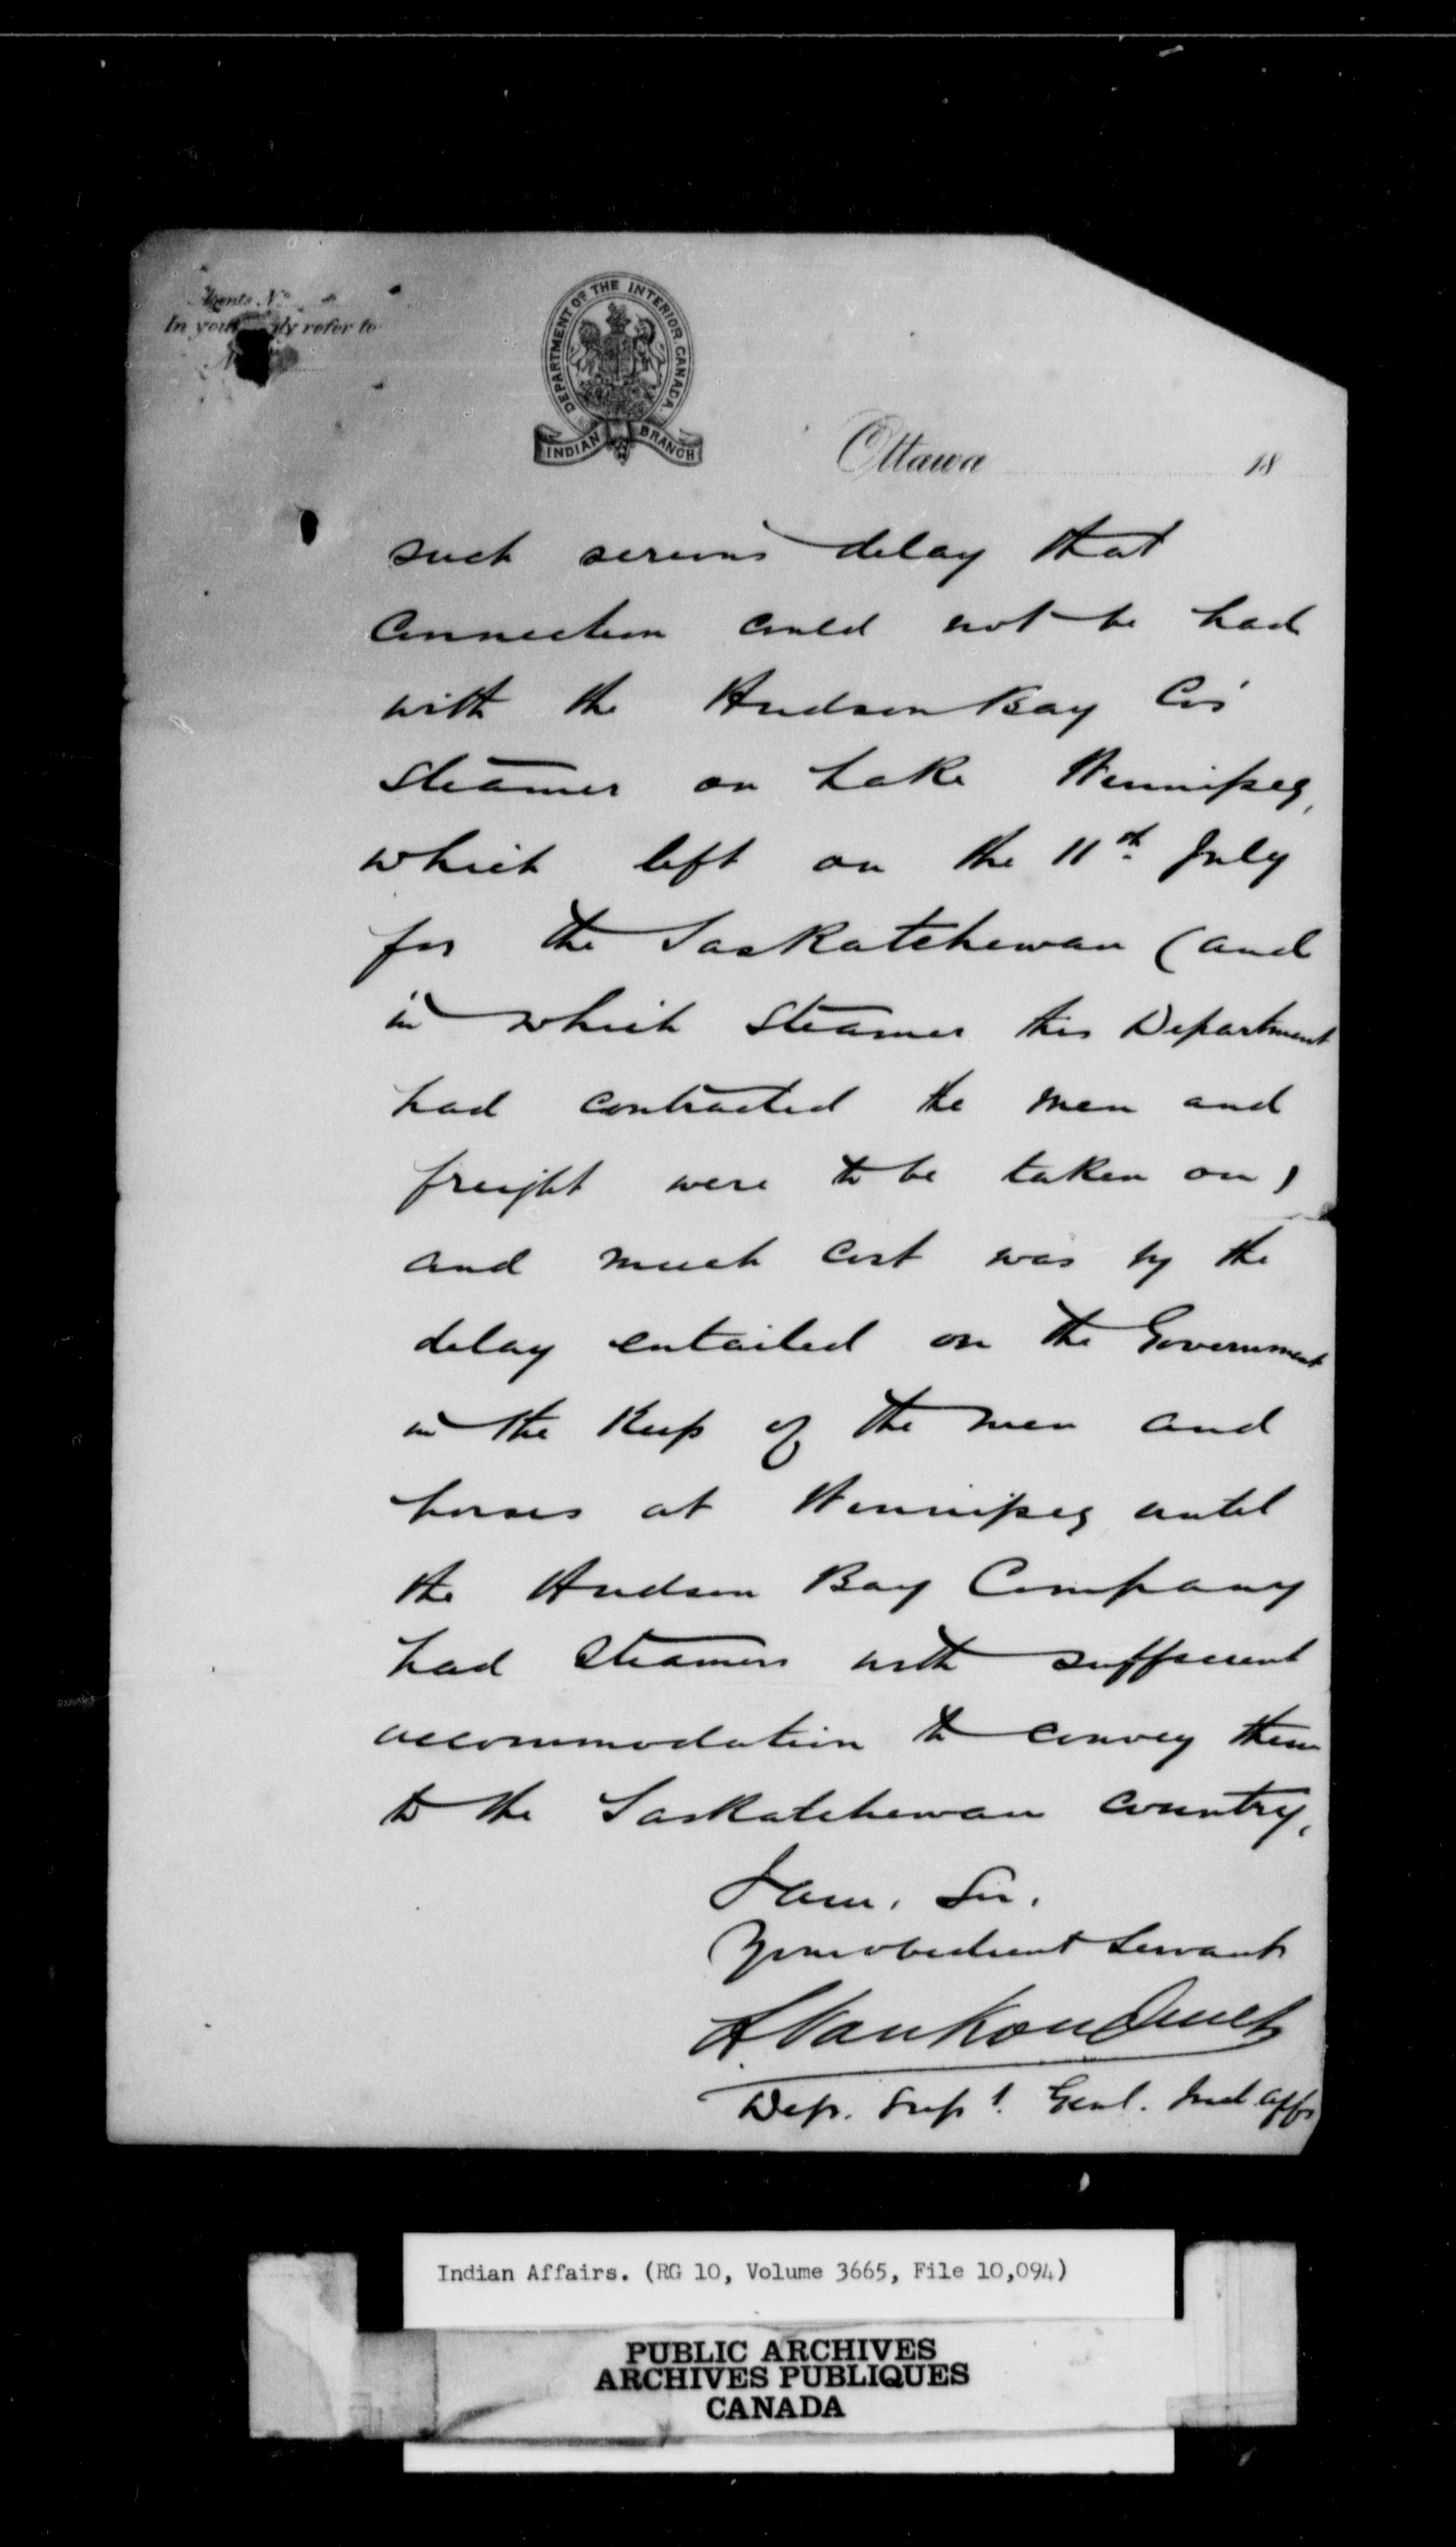 Agents No
In your reply refer to
DEPARTMENT OF THE INTERIOR. CANADA.
INDIAN BRANCH
Ottawa 18
such serious delay that
connection could not be had
with the Hudson Bay Co's
steamer on Lake Winnipeg,
which left on the 11th July
for the Saskatchewan (and
in which steamer this Department
had contracted the men and
freight were to be taken on)
and much cost was by the
delay entailed on the Government
in the Keep of the men and
horses at Winnipeg until
the Hudson Bay Company
had steamers with sufficient
accommodation to convey them
to the Saskatchewan country.
I am, Sir,
Your obedient Servant
L VanKoughnet
Dep. Supt. Genl. Ind. Affs
Indian Affairs. (RG 10, Volume 3665, File 10,094)
PUBLIC ARCHIVES
ARCHIVES PUBLIQUES
CANADA